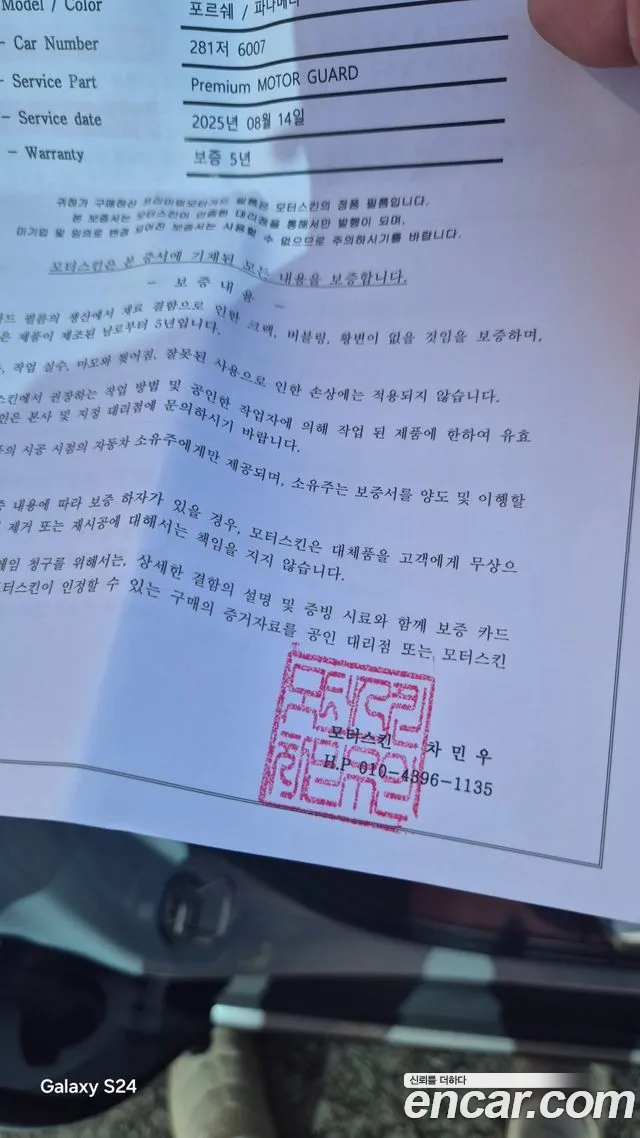 Model / Color 포르쉐 / 파나메라
- Car Number 281저 6007
- Service Part Premium MOTOR GUARD
- Service date 2025년 08월 14일
- Warranty 보증 5년
귀하가 구매하신 프리미엄모터가드 필름은 모터스킨의 정품 필름입니다.
본 보증서는 모터스킨이 인증한 대리점을 통해서만 발행이 되며,
미기입 및 임의로 변경 되어진 보증서는 사용할 수 없으므로 주의하시기를 바랍니다.
모터스킨은 본 증서에 기재된 모든 내용을 보증합니다.
- 보 증 내 용 -
필름의 생산에서 재료 결함으로 인한 크랙, 버블링, 황변이 없을 것임을 보증하며,
은 제품이 제조된 날로부터 5년입니다.
작업 실수, 마모와 찢어짐, 잘못된 사용으로 인한 손상에는 적용되지 않습니다.
스킨에서 권장하는 작업 방법 및 공인한 작업자에 의해 작업 된 제품에 한하여 유효
인은 본사 및 지정 대리점에 문의하시기 바랍니다.
의 시공 시점의 자동차 소유주에게만 제공되며, 소유주는 보증서를 양도 및 이행할
내용에 따라 보증 하자가 있을 경우, 모터스킨은 대체품을 고객에게 무상으
제거 또는 재시공에 대해서는 책임을 지지 않습니다.
레임 청구를 위해서는, 상세한 결함의 설명 및 증빙 시료와 함께 보증 카드
모터스킨이 인정할 수 있는 구매의 증거자료를 공인 대리점 또는 모터스킨
모터스킨 차 민 우
H.P 010-4396-1135
Galaxy S24
신뢰를 더하다
encar.com